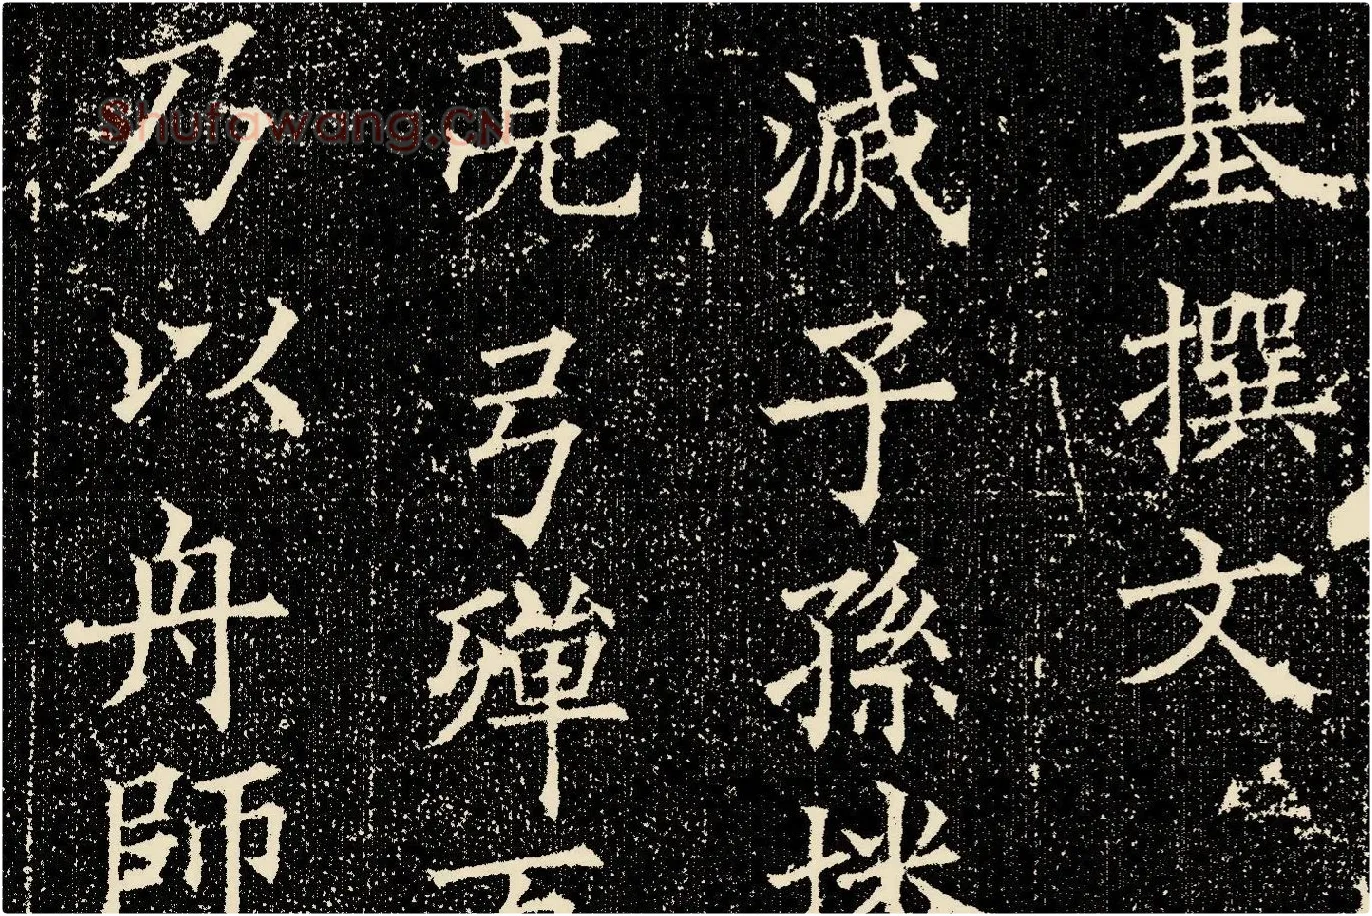 基撰文
滅子孫
亮弓殫
乃以舟師
Shufawang.CN